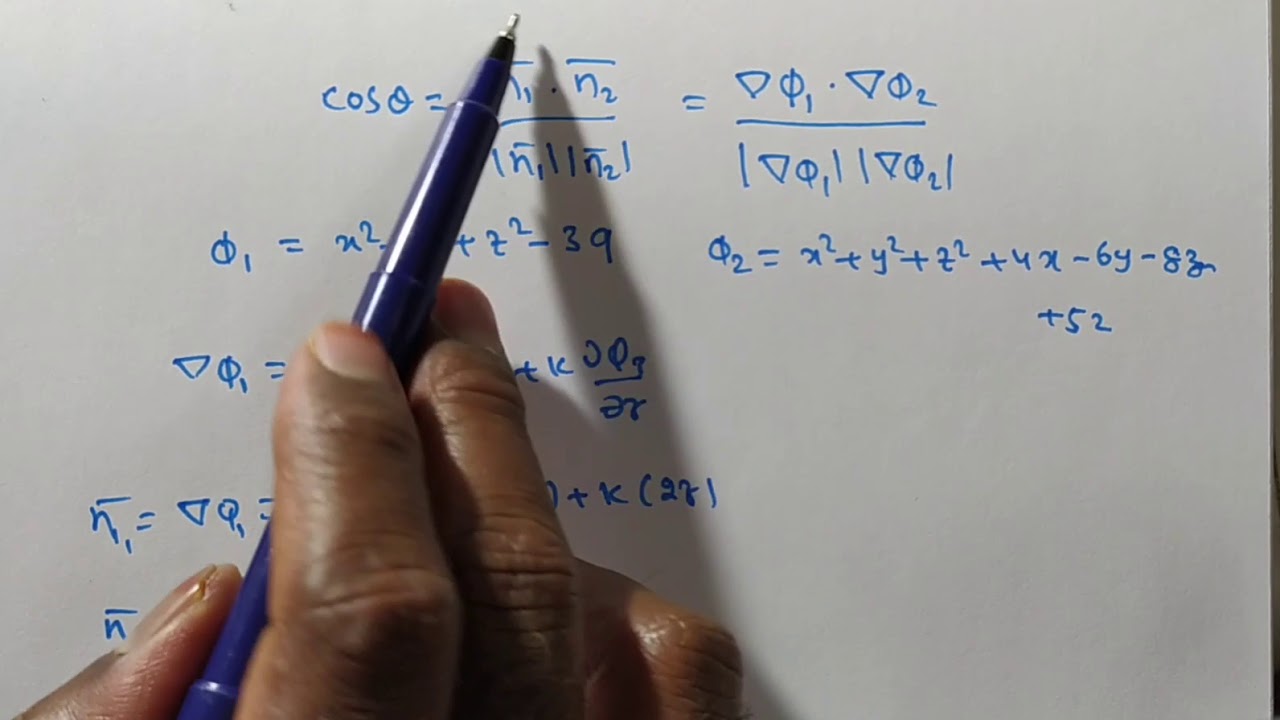 cosθ = n̅₁ · n̅₂ / |n̅₁| |n̅₂| = ∇ϕ₁ · ∇ϕ₂ / |∇ϕ₁| |∇ϕ₂|
ϕ₁ = x² + z² - 39
ϕ₂ = x² + y² + z² + 4x - 6y - 8z
+52
∇ϕ₁ = + k ∂ϕ₃ / ∂z
n̅₁ = ∇ϕ₁ = ) + k (2z)
n̅